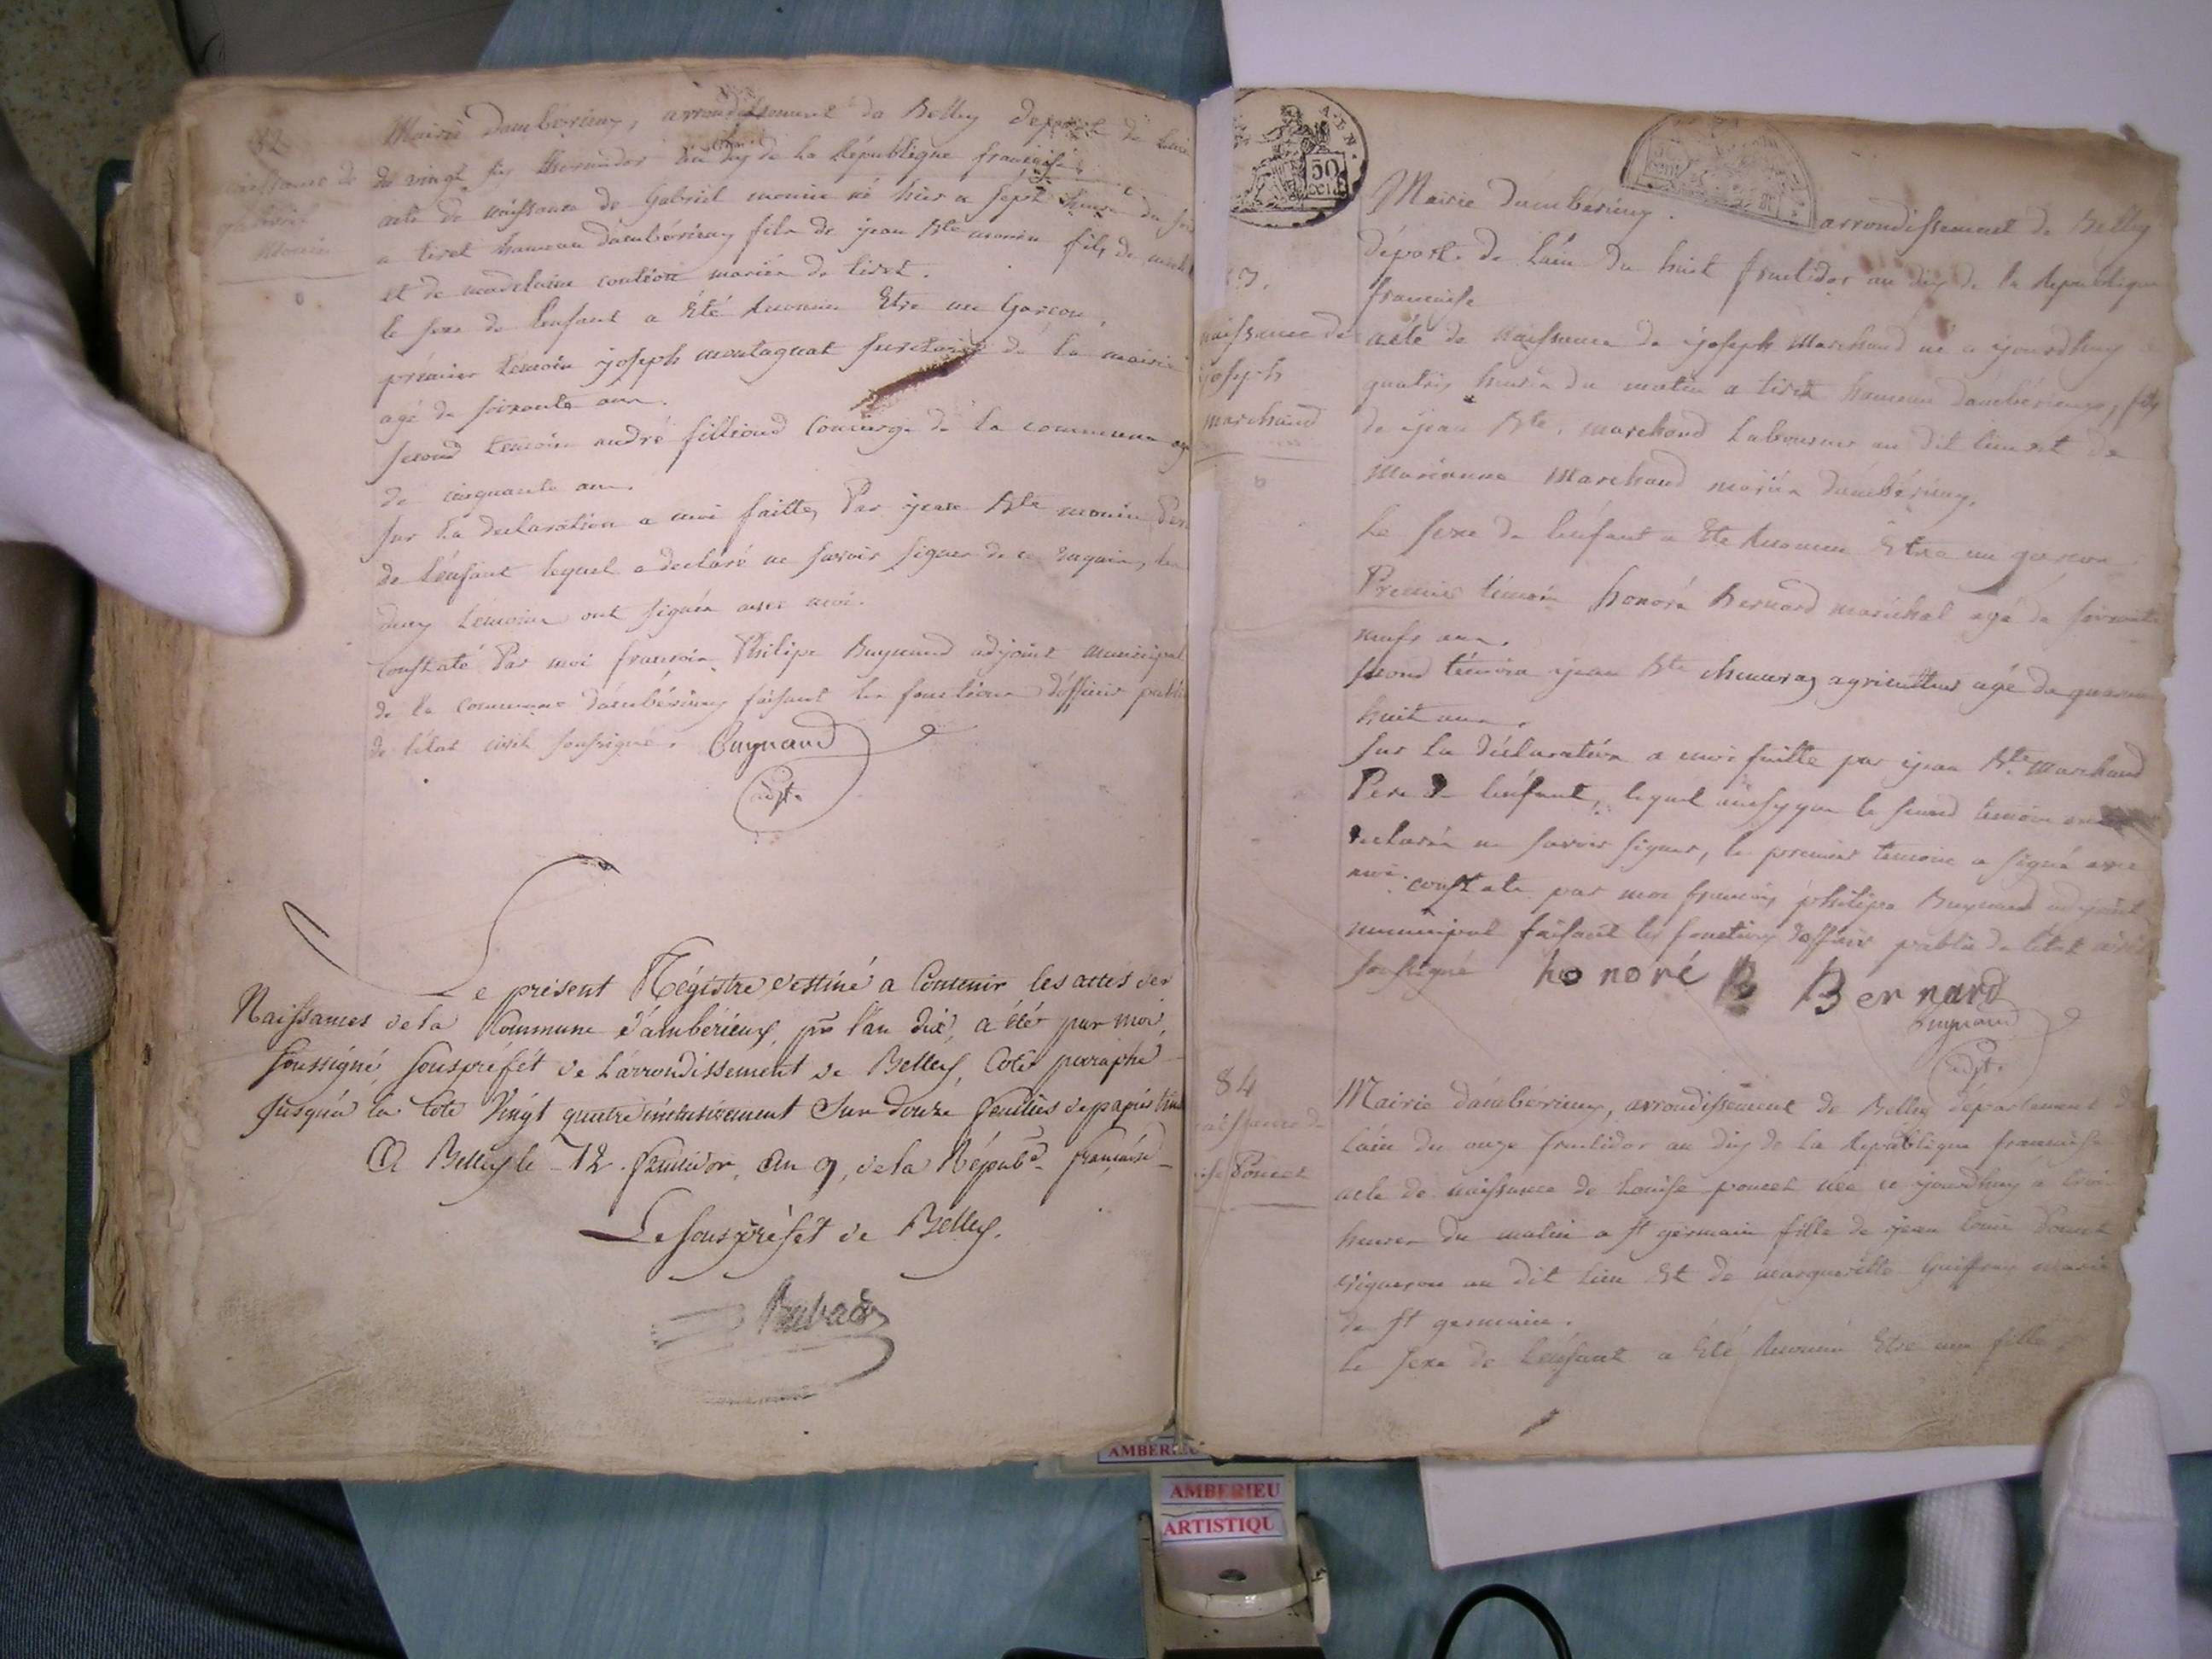 82
naissance de
gabriel
monin
Mairie dambérieux, arrondissement de Belley départ de Lain
du vingt six thermidor an dix de la République française
acte de naissance de Gabriel monin né hier a sept heures du soir
a tiret hameau dambérieux fils de jean Bte monin fils de
et de madelaine mariés de tiret.
le sexe de lenfant a été Reconnu Etre un Garçon.
prémier témoin joseph montagnat secretaire de la mairie
agé de soixante ans.
second temoin andré filliond Concierge de la commune agé
de cinquante ans.
sur la declaration a moi faitte Par jean Bte monin Pere
de lenfant lequel a declaré ne savoir signer de ce requis, les
deux témoins ont signés avec moi.
Constaté Par moi françois Philipe Buynand adjoint municipal
de la Commune dambérieux faisant les fonctions dofficier public
de létat civil soussigné. Buynand
adjt.
Le présent Régistre destiné a Contenir les actes des
Naissances de la Commune d'ambérieux, pr l'an dix, a été par moi,
soussigné, souspréfét de Larrondissement de Belley, Coté paraphé
jusqu'à la Cote Vingt quatre inclusivement sur douze feuilles de papier timbré
A Belley le 12 fructidor, an 9, de la Répub. française
Le souspréfét de Belley.
50
Mairie dambérieux. arrondissement de Belley
départ. de Lain du huit fructidor an dix de la République
française
naissance de
joseph
marchand
acte de naissance de joseph Marchand né a jourdhuy
quatre heures du matin a tiret hameau dambérieux, fils
de jean Bte. marchand Laboureur au dit lieu et de
Marianne Marchand mariés dambérieux.
Le sexe de lenfant a Ete Reconnu Etre un garcon
Premier témoin honoré Bernard maréchal agé de soixante
neuf ans.
second témoin jean Bte agriculteur agé de quarante
huit ans.
sur la déclaration a moi faitte par jean Bte. Marchand
Pere de lenfant, lequel ainsy que le second temoin
declarés ne savoir signer, le premier temoin a signé avec
moi. constaté par moi françois philipe Buynand adjoint
municipal faisant les fonctions dofficier public de létat civil
soussigné honoré B Bernard
Buynand
adjt.
84
naissance de
Poncet
Mairie dambérieux, arrondissement de Belley département de
Lain du onze fructidor an dix de la République française
acte de naissance de Louise poncet née ce jourdhuy a trois
heures du matin a st germain fille de jean Louis Poncet
vigneron au dit lieu Et de margueritte Guiffray mariés
de st germain.
le sexe de lenfant a Eté Reconnu Etre une fille.
AMBERIEU
AMBERIEU
ARTISTIQU